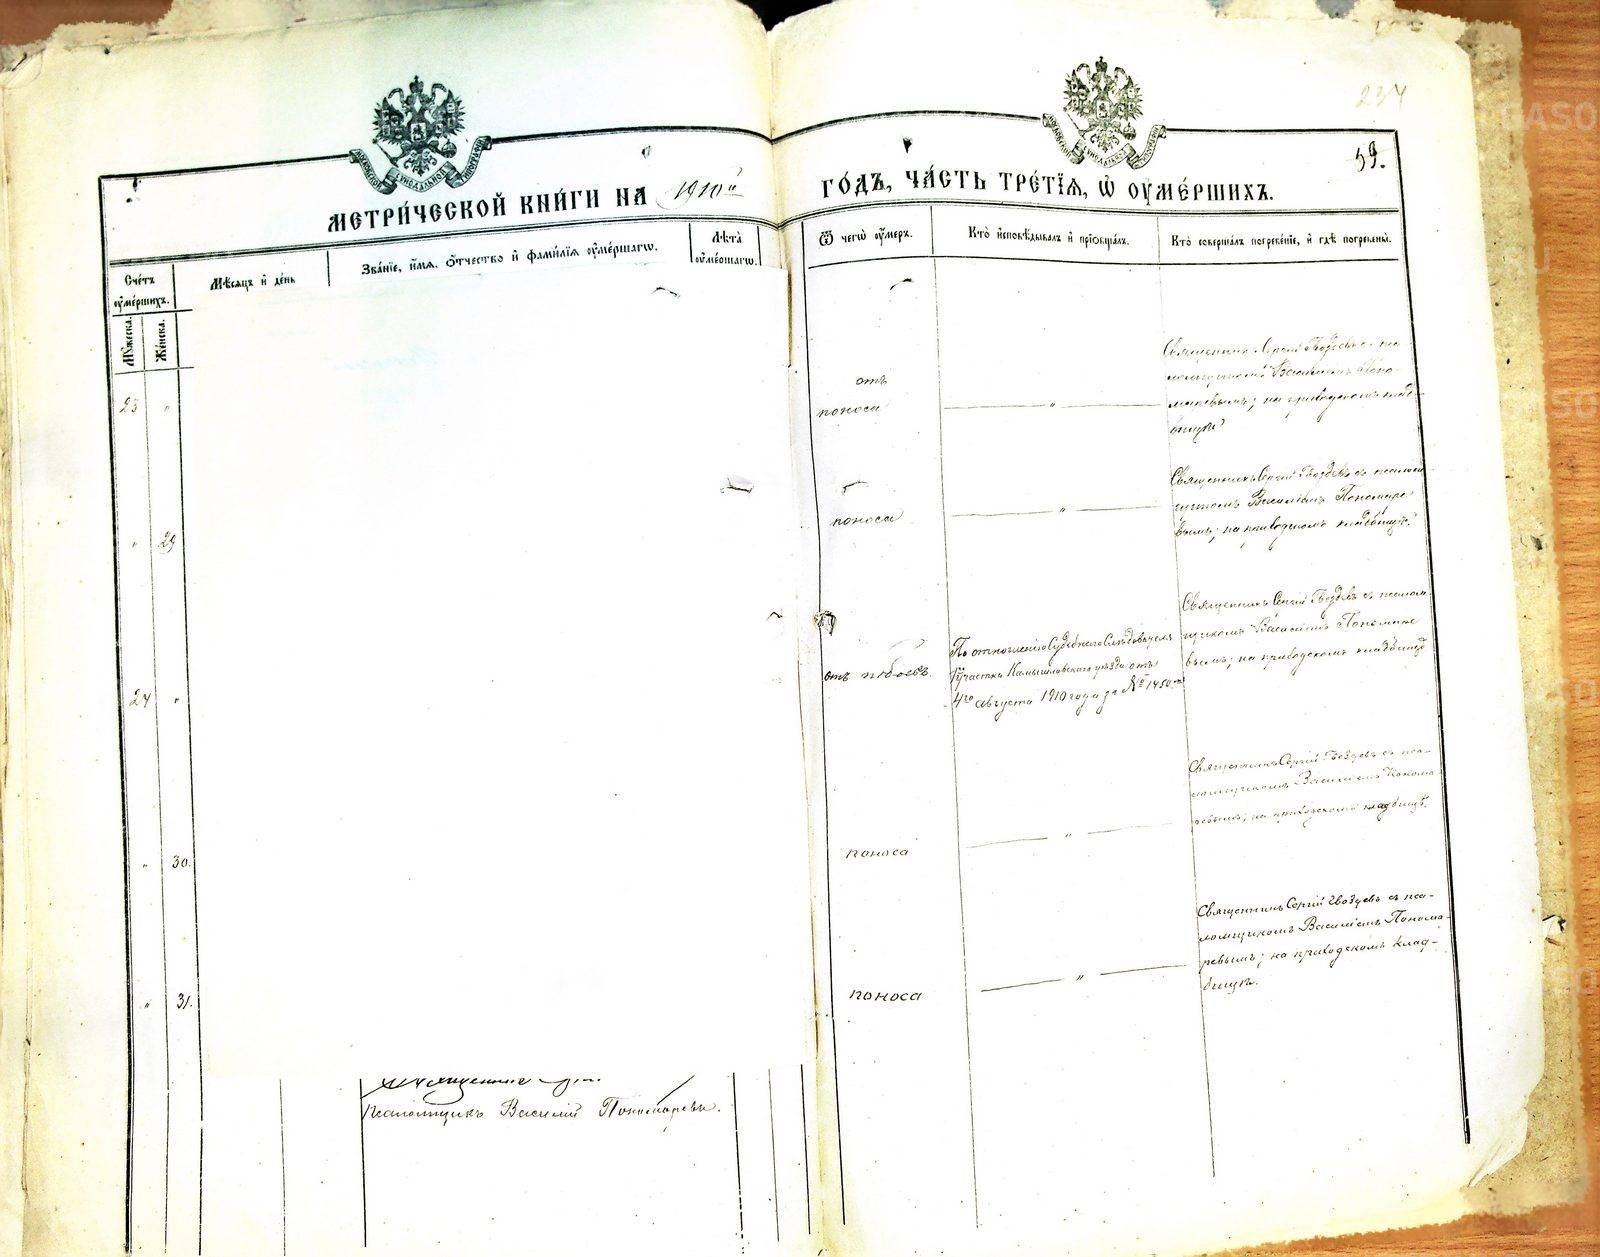 234
59.
МЕТРИ́ЧЕСКОЙ КНИ́ГИ НА 1910й ГО́ДЪ, ЧА́СТЬ ТРЕ́ТIѦ, Ѽ ОУМЕ́РШИХЪ.
Сче́тъ оуме́ршихъ.
Му́жеска.
Же́нска.
Мѣ́сѧцъ и де́нь
Зва́нїе, и́мѧ, о́тчество и фами́лїѧ оуме́ршагѡ.
Лѣ́та оуме́ршагѡ.
Ѿ чегѡ̀ оу́меръ.
Кто̀ исповѣ́дывалъ и прїобща́лъ.
Кто̀ соверша́лъ погребе́нїе, и гдѣ̀ погребены̀.
23 "
отъ
поноса
"
Священникъ Сергій Гвоздевъ с пса-
ломщикомъ Василіемъ Поно-
маревымъ; на приходскомъ клад-
бищѣ
" 29
поноса
"
Священникъ Сергій Гвоздевъ съ псалом-
щикомъ Василіемъ Пономаре-
вымъ; на приходскомъ кладбищѣ.
24 "
отъ побоевъ.
По отношенію Судебнаго Слѣдователя
участка Камышловскаго уѣзда отъ
4го августа 1910 года за № 1450
Священникъ Сергій Гвоздевъ съ псалом-
щикомъ Василіемъ Пономаре
вымъ; на приходскомъ кладбищѣ
" 30.
поноса
"
Священникъ Сергій Гвоздевъ съ пса-
ломщикомъ Василіемъ Понома
ревымъ; на приходскомъ кладбищѣ.
" 31.
поноса
"
Священникъ Сергій Гвоздевъ съ пса-
ломщикомъ Василіемъ Понома-
ревымъ; на приходскомъ клад-
бищѣ.
Псаломщикъ Василій Пономаревъ.